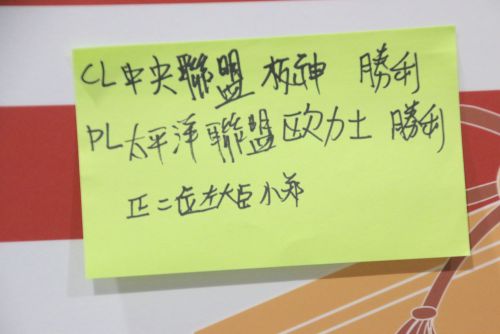 CL中央聯盟 阪神 勝利
PL太平洋聯盟 欧力士 勝利
正二位左大臣 小鄭